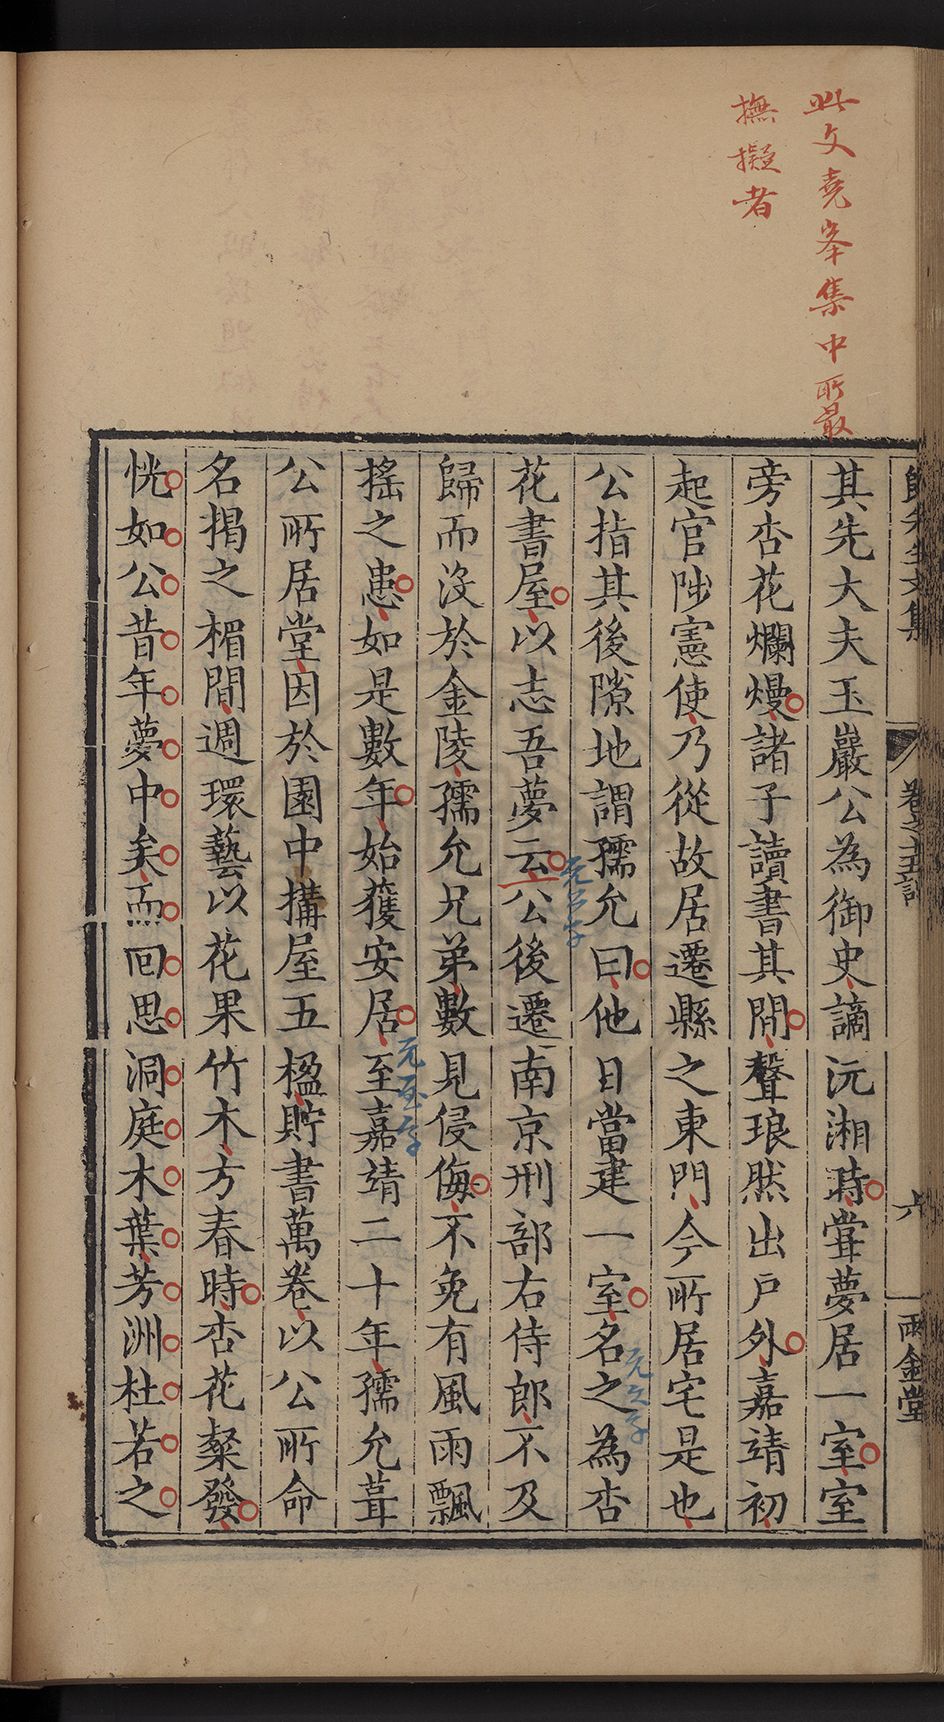 此文堯峯集中所最
撫擬者
其先大夫玉巖公為御史謫沅湘時嘗夢居一室室
旁杏花爛熳諸子讀書其間聲琅然出戶外嘉靖初
起官陟憲使乃從故居遷縣之東門今所居宅是也
公指其後隙地謂孺允曰他日當建一室名之為杏
花書屋以志吾夢云公後遷南京刑部右侍郎不及
歸而沒於金陵孺允兄弟數見侵侮不免有風雨飄
搖之患如是數年始獲安居至嘉靖二十年孺允葺
公所居堂因於園中搆屋五楹貯書萬卷以公所命
名揭之楣間週環藝以花果竹木方春時杏花粲發
恍如公昔年夢中矣而回思洞庭木葉芳洲杜若之
卷之十五記
六
雨金堂
元至字